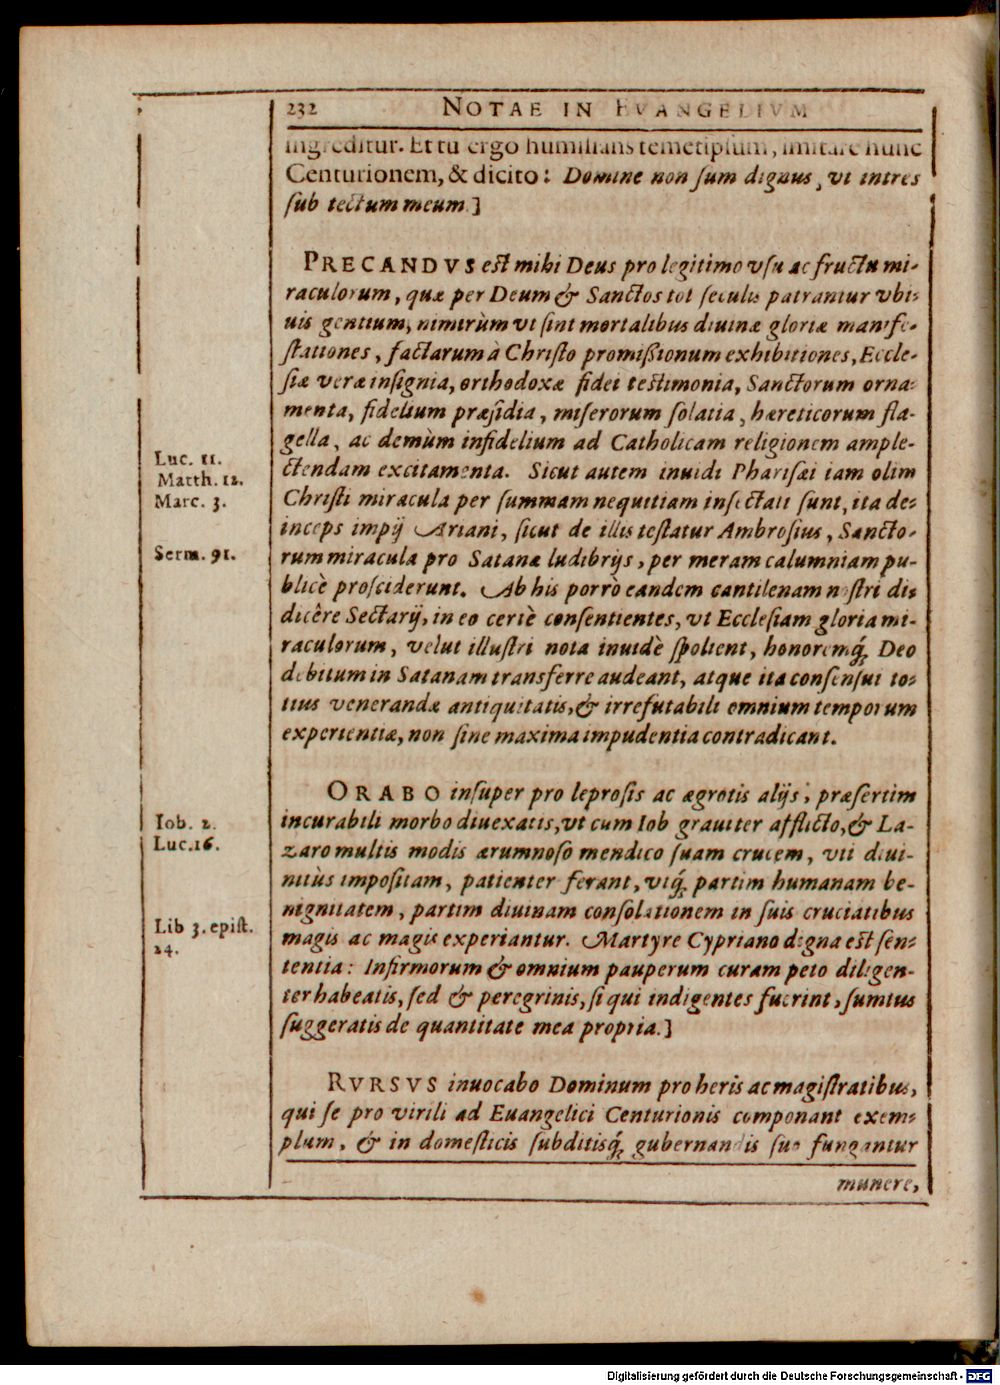 232 NOTAE IN EVANGELIVM
ingreditur. Et tu ergo humilians temetipsum, imitare hunc
Centurionem, & dicito: Domine non sum dignus, vt intres
sub tectum meum.]
PRECANDVS est mihi Deus pro legitimo vsu ac fructu mi-
raculorum, quæ per Deum & Sanctos tot seculis patrantur vbi-
uis gentium, nimirùm vt sint mortalibus diuinæ gloriæ manife-
stationes, factarum à Christo promißionum exhibitiones, Eccle-
siæ veræ insignia, orthodoxæ fidei testimonia, Sanctorum orna-
menta, fidelium præsidia, miserorum solatia, hæreticorum fla-
gella, ac demùm infidelium ad Catholicam religionem ample-
ctendam excitamenta. Sicut autem inuidi Pharisæi iam olim
Luc. 11.
Matth. 12.
Christi miracula per summam nequitiam insectati sunt, ita de-
Marc. 3.
inceps impij Ariani, sicut de illis testatur Ambrosius, Sancto-
rum miracula pro Satanæ ludibrijs, per meram calumniam pu-
Serm. 91.
blicè prosciderunt. Ab his porrò eandem cantilenam nostri di-
dicêre Sectarij, in eo certè consentientes, vt Ecclesiam gloria mi-
raculorum, velut illustri nota inuidè spolient, honoremq́; Deo
debitum in Satanam transferre audeant, atque ita consensui to-
tius venerandæ antiquitatis, & irrefutabili omnium temporum
experientiæ, non sine maxima impudentia contradicant.
ORABO insuper pro leprosis ac ægrotis alijs, præsertim
incurabili morbo diuexatis, vt cum Iob grauiter afflicto, & La-
Iob. 2.
Luc. 16.
zaro multis modis ærumnoso mendico suam crucem, vti diui-
nitùs impositam, patienter ferant, vtq́; partim humanam be-
nignitatem, partim diuinam consolationem in suis cruciatibus
Lib 3. epist.
24.
magis ac magis experiantur. Martyre Cypriano digna est sen-
tentia: Infirmorum & omnium pauperum curam peto diligen-
ter habeatis, sed & peregrinis, si qui indigentes fuerint, sumtus
suggeratis de quantitate mea propria.]
RVRSVS inuocabo Dominum pro heris ac magistratibus,
qui se pro virili ad Euangelici Centurionis componant exem-
plum, & in domesticis subditisq́; gubernandis suo fungantur
munere,
Digitalisierung gefördert durch die Deutsche Forschungsgemeinschaft - DFG